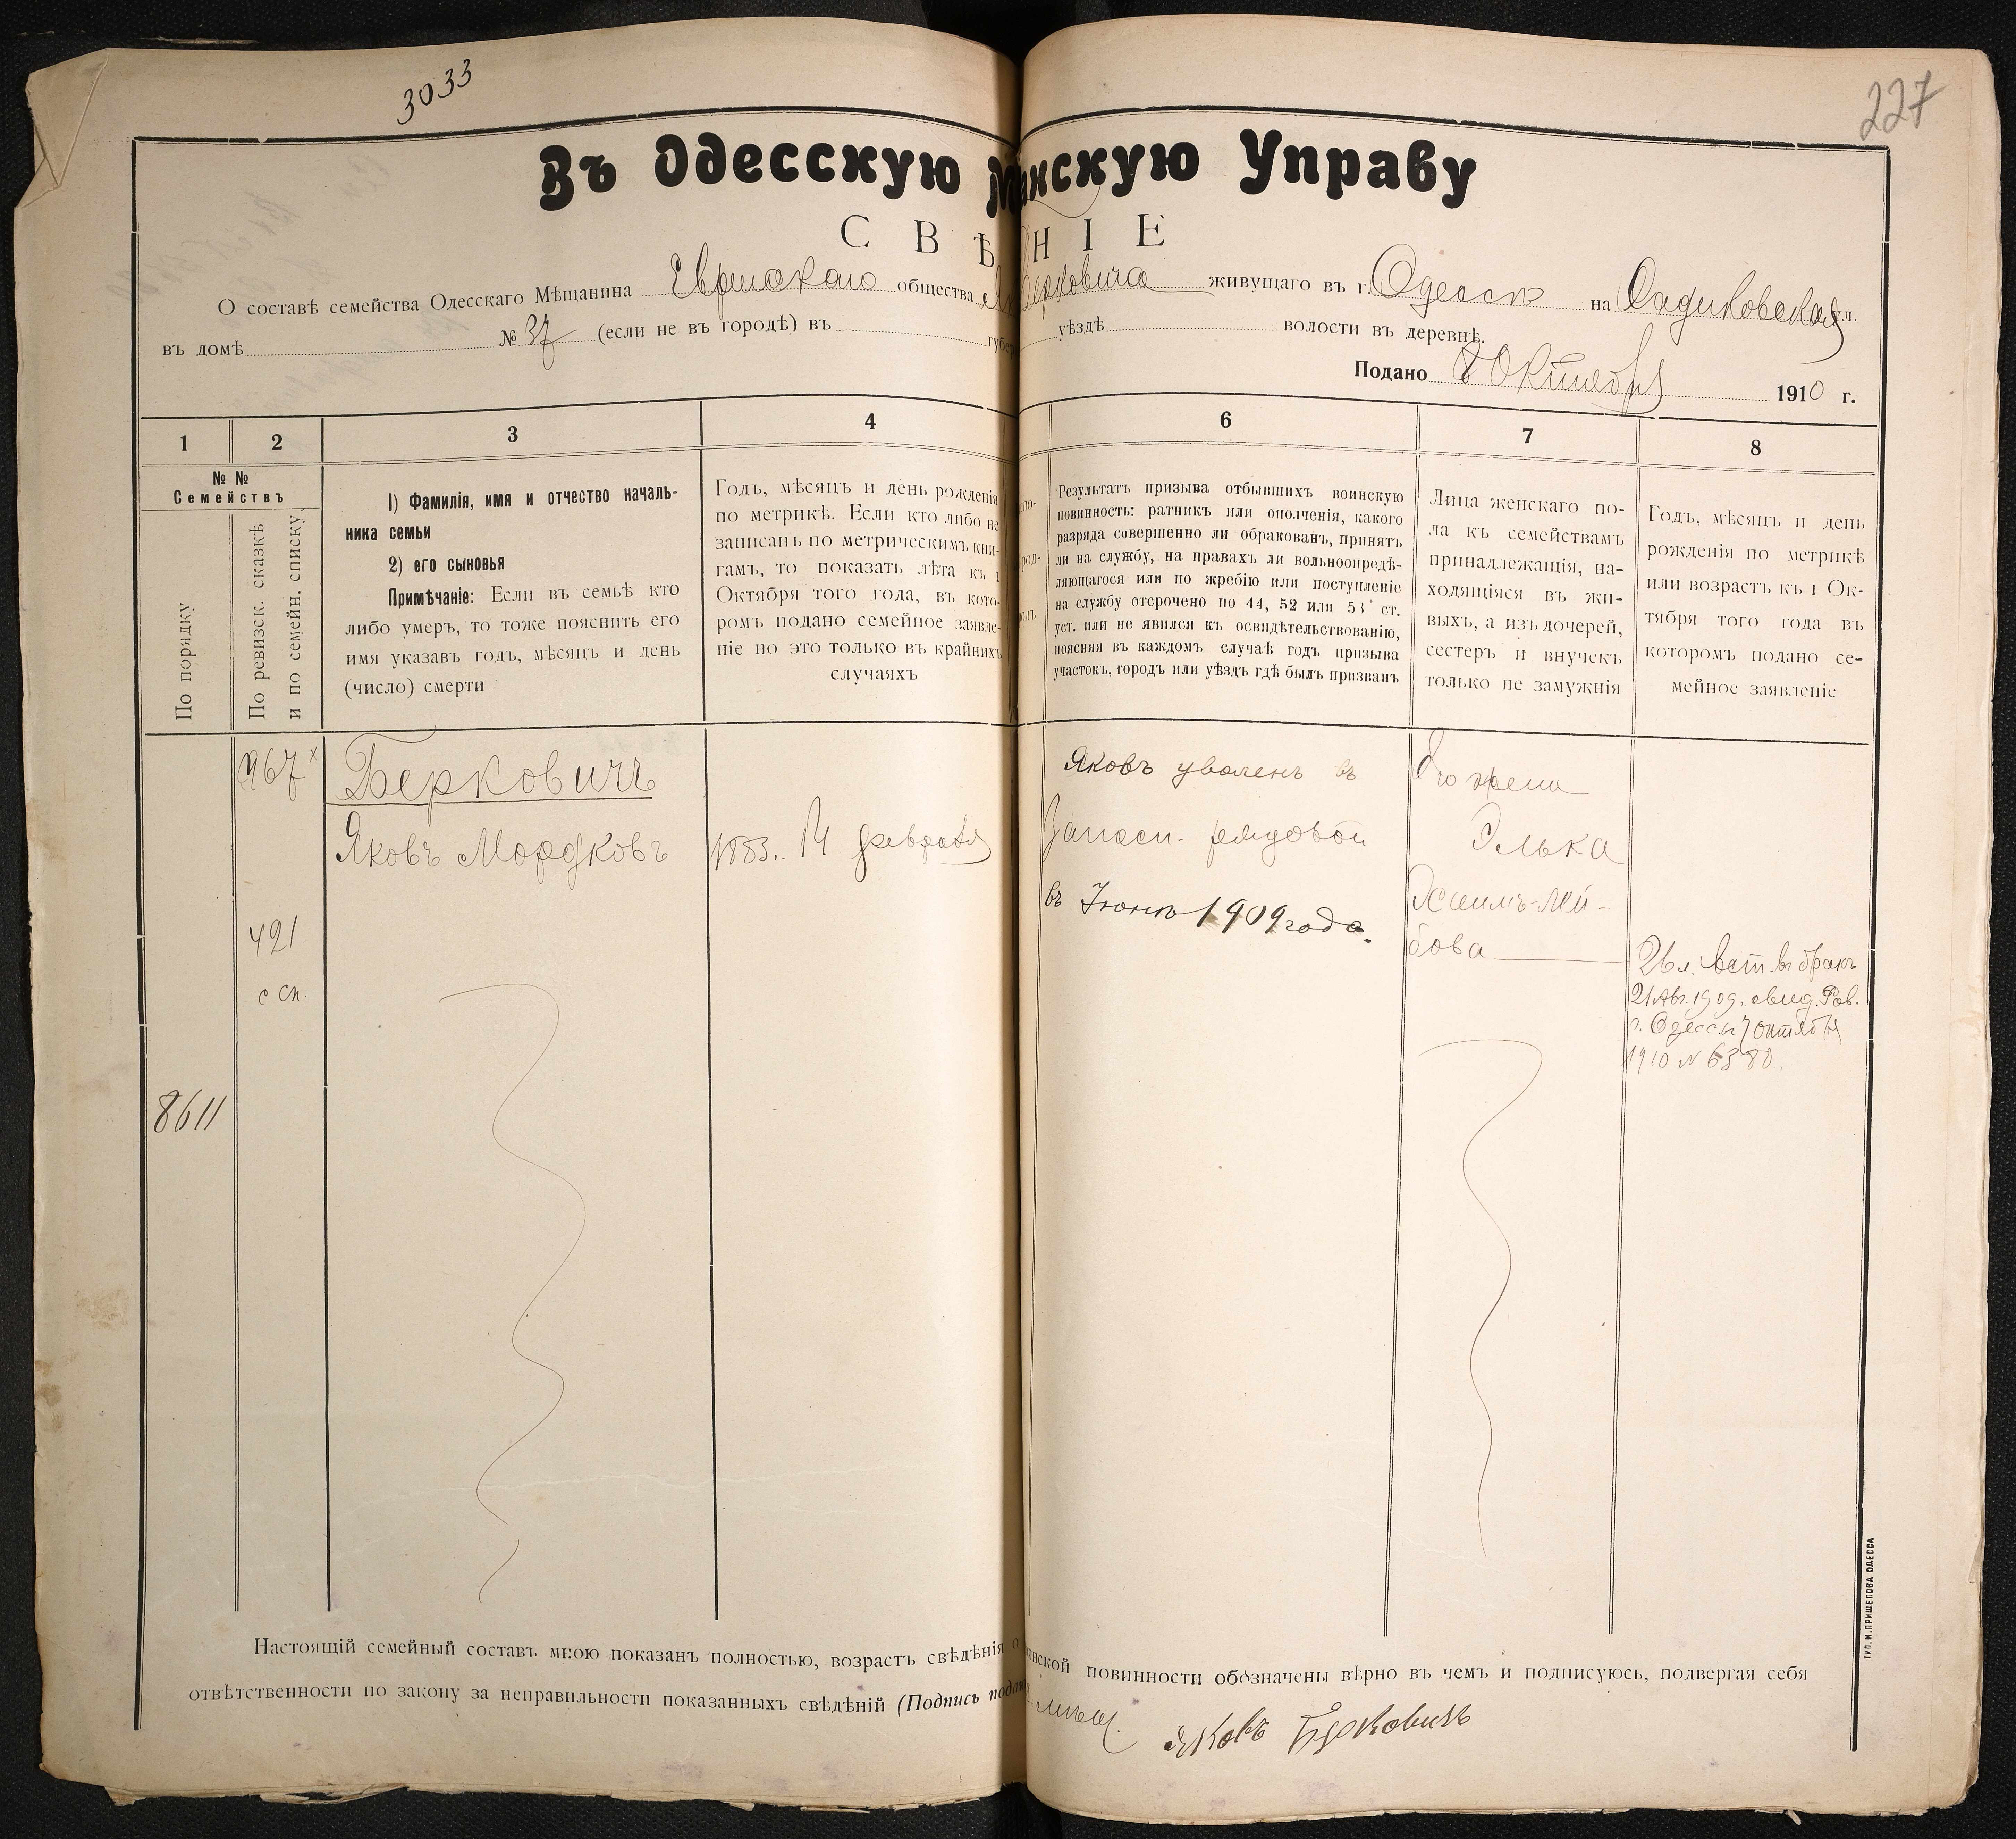 3033
227
Въ Одесскую М анскую Управу
СВѢ НІЕ
О составѣ семейства Одесскаго Мѣщанина Еврейскаго общества Берковича живущаго въ г. Одессѣ на Садиковская ул.
въ домѣ № 37 (если не въ городѣ) въ губер уѣздѣ волости въ деревнѣ.
Подано 8 Октября 1910 г.
1 2 3 4 6 7 8
№ №
Семействъ
По порядку
По ревизск. сказкѣ
и по семейн. списку
1) Фамилія, имя и отчество началь-
ника семьи
2) его сыновья
Примѣчаніе: Если въ семьѣ кто
либо умеръ, то тоже пояснить его
имя указавъ годъ, мѣсяцъ и день
(число) смерти
Годъ, мѣсяцъ и день рожденія
по метрикѣ. Если кто либо не
записанъ по метрическимъ кни-
гамъ, то показать лѣта къ 1
Октября того года, въ кото-
ромъ подано семейное заявле-
ніе но это только въ крайнихъ
случаяхъ
Результатъ призыва отбывшихъ воинскую
повинность: ратникъ или ополченія, какого
разряда совершенно ли обракованъ, принятъ
ли на службу, на правахъ ли вольноопредѣ-
ляющагося или по жребію или поступленіе
на службу отсрочено по 44, 52 или 53 ст.
уст. или не явился къ освидѣтельствованію,
поясняя въ каждомъ случаѣ годъ призыва
участокъ, городъ или уѣздъ гдѣ былъ призванъ
Лица женскаго по-
ла къ семействамъ
принадлежащія, на-
ходящіяся въ жи-
выхъ, а изъ дочерей,
сестеръ и внучекъ
только не замужнія
Годъ, мѣсяцъ и день
рожденія по метрикѣ
или возрастъ къ 1 Ок-
тября того года въ
которомъ подано се-
мейное заявленіе
8611
967 x
421
с сп.
Берковичъ
Яковъ Мордковъ
1883. 14 февраля
Яковъ уволенъ въ
Запасн. рядовой
въ Іюнѣ 1909 года.
Его жена
Элька
Хаимъ-Лей-
бова
26 л. Вст. въ бракъ
21 Авг. 1909. свид. Рав.
г. Одессы 7 октября
1910 № 6380.
Настоящій семейный составъ мною показанъ полностью, возрастъ свѣдѣнія о инской повинности обозначены вѣрно въ чемъ и подписуюсь, подвергая себя
отвѣтственности по закону за неправильности показанныхъ свѣдѣній (Подпись подаю
Яковъ Берковичъ
ТИП. М. ПРИЩЕПОВА ОДЕССА